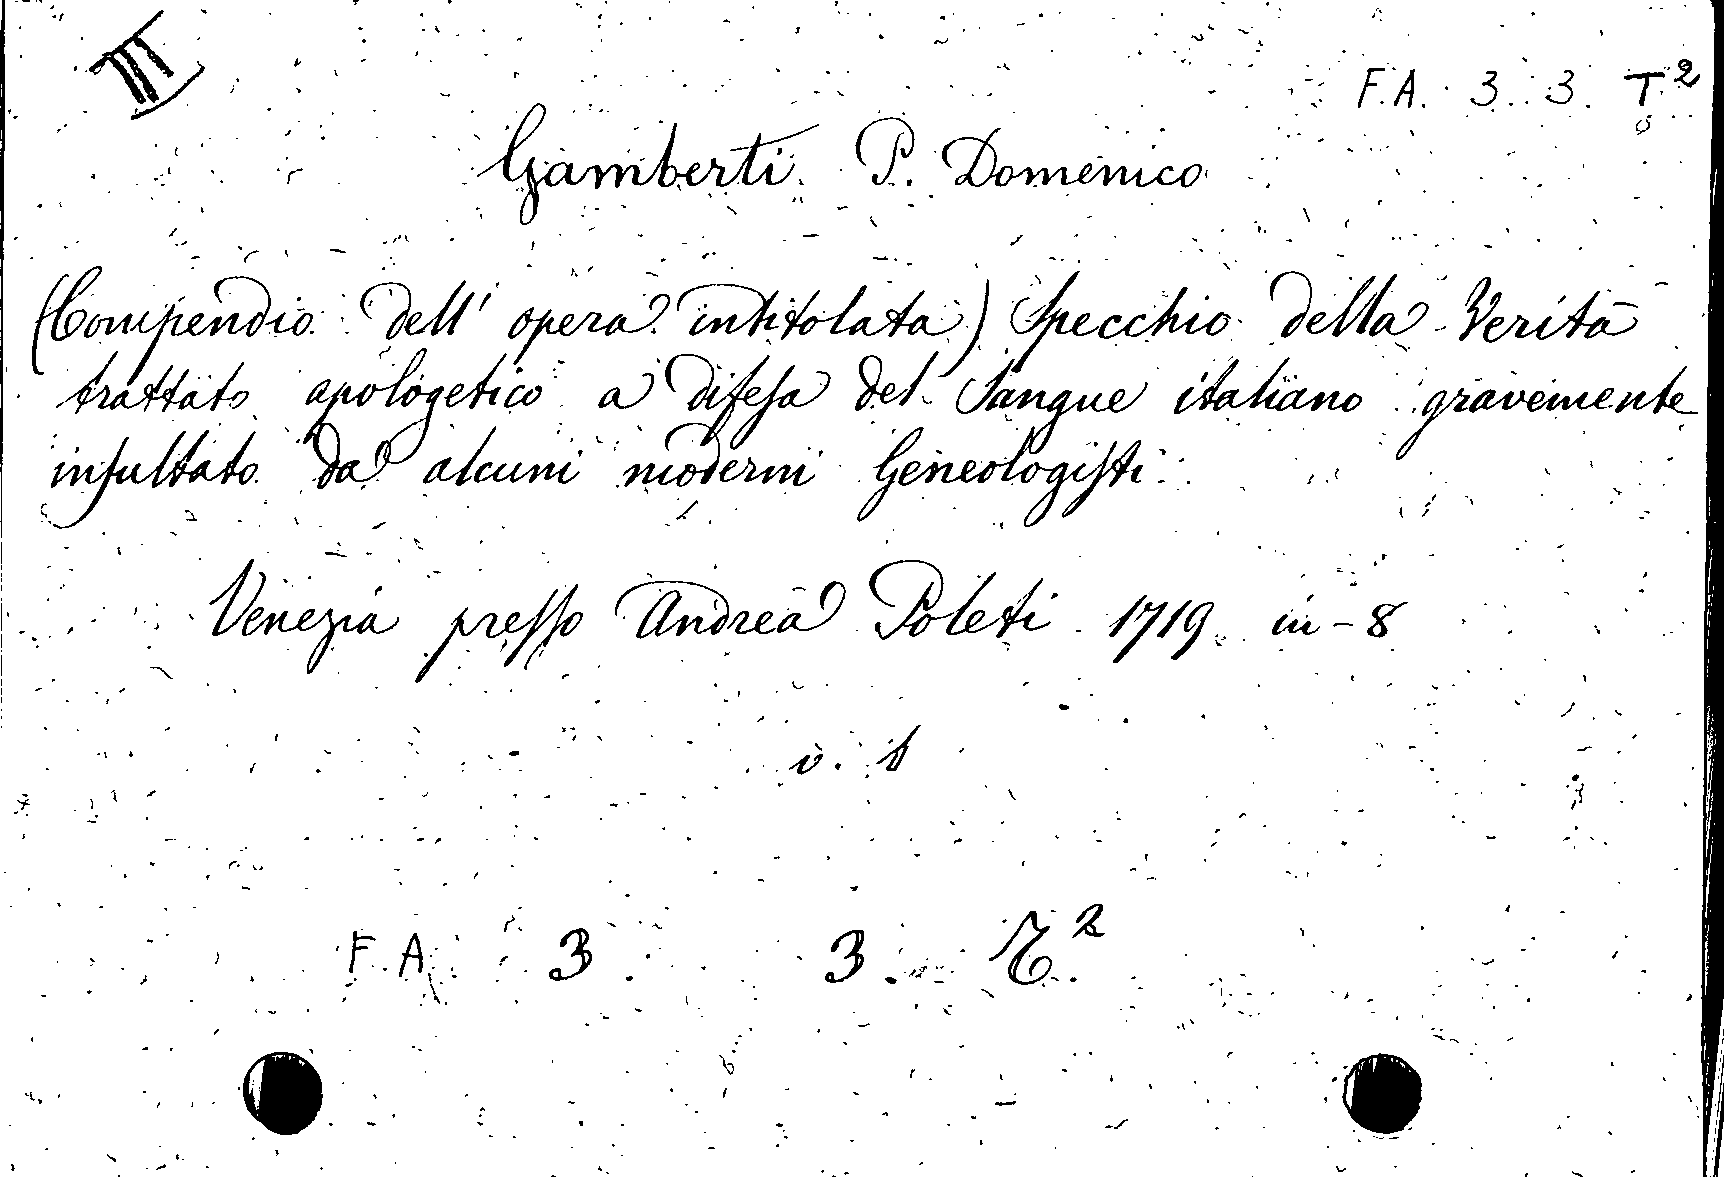 III
F. A. 3. 3. T²
Gamberti P. Domenico
(Compendio dell' opera intitolata) Specchio della Verità
trattato apologetico a difesa del Sangue italiano gravemente
insultato da alcuni moderni Geneologisti
Venezia presso Andrea Poleti 1719 in-8
v. 1
F. A. 3. 3. T².